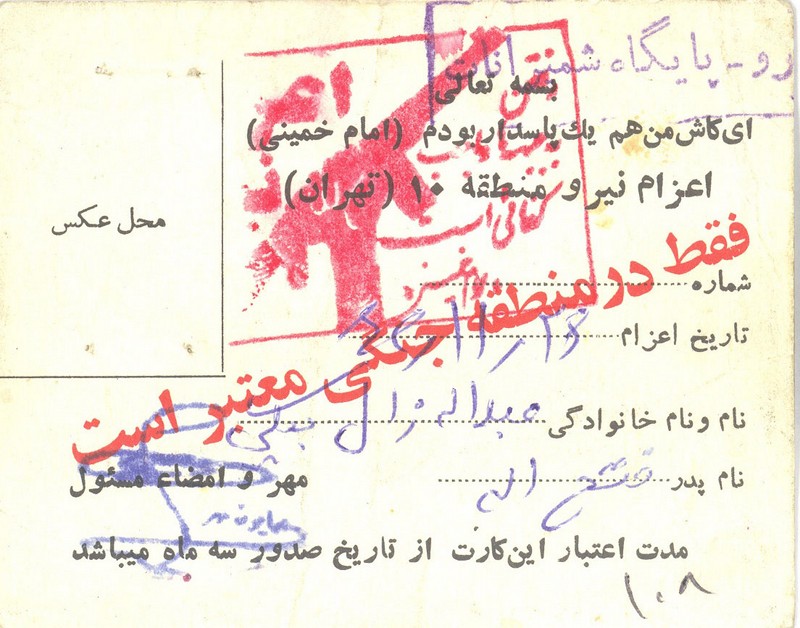 رو - پایگاه شمیرانات
بسمه تعالی
ای کاش من هم یك پاسدار بودم (امام خمینی)
اعزام نیرو منطقه ۱۰ (تهران)
محل عکس
فقط در منطقه جنگی معتبر است
شماره
تاریخ اعزام
نام و نام خانوادگی عبداله زال بیگی
نام پدر فتح اله
مهر و امضاء مسئول
مدت اعتبار این کارت از تاریخ صدور سه ماه میباشد
۱۰۸